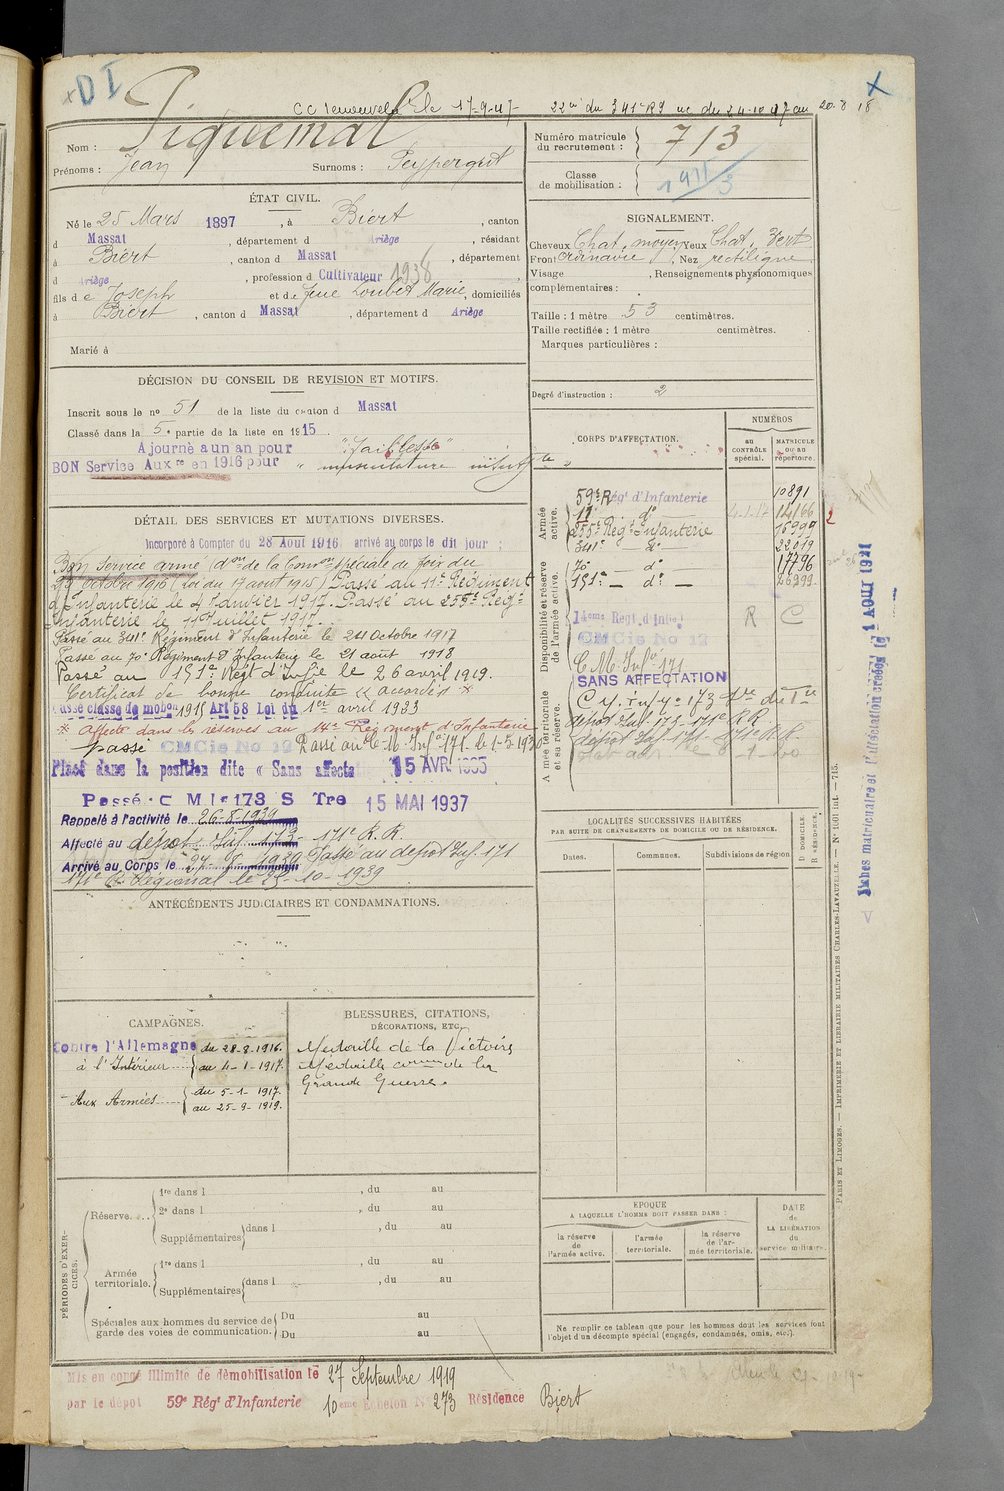 D I
CC renouvelé le 17-9-47
22 Cie du 341e RI
Nom : Piquemal
Prénoms : Jean Surnoms : Peypergut
ÉTAT CIVIL.
Né le 25 Mars 1897, à Biert, canton
d Massat, département d Ariège, résidant
à Biert, canton d Massat, département
d Ariège, profession d Cultivateur 1938
fils de Joseph et de feue Loubet Marie, domiciliés
à Biert, canton d Massat, département d Ariège
Marié à
DÉCISION DU CONSEIL DE REVISION ET MOTIFS.
Inscrit sous le no 51 de la liste du canton d Massat
Classé dans la 5e partie de la liste en 1915
Ajourné a un an pour "Faiblesse"
BON Service Auxre en 1916 pour "musculature insuffte"
DÉTAIL DES SERVICES ET MUTATIONS DIVERSES.
Incorporé à Compter du 28 Aout 1916 arrivé au corps le dit jour ;
Bon Service armé (don de la Comon spéciale de Foix du
octobre 1916 (Loi du 17 aout 1915) Passé au 11e Régiment
d'Infanterie le 4 Janvier 1917. Passé au 255e Régt
Infanterie le 11 Juillet 1917.
Passé au 341e Régiment d'Infanterie le 24 Octobre 1917
Passé au 70e Régiment d'Infanterie le 21 août 1918
Passé au 151e Régt d'Infie le 26 avril 1919.
Certificat de bonne conduite "accordé" *
Passé classe de mobon 1915 Art 58 Loi du 1er avril 1923
* Affecté dans les réserves au 14e Régiment d'Infanterie
Passé CMCie No 19 Passé au C.M. Infie 171. le 1-5-1930
Placé dans la position dite « Sans affecta 15 AVR 1935
Passé C M I 173 S Tre 15 MAI 1937
Rappelé à l'activité le 26-8-1939
Affecté au dépôt Inf. 173 - 171e R.R.
Arrivé au Corps le 27-8-1939 Passé au dépôt Inf. 171
171e Rt Régional le 25-10-1939
ANTÉCÉDENTS JUDICIAIRES ET CONDAMNATIONS.
CAMPAGNES.
Contre l'Allemagne
à l'Intérieur { du 28-8-1916.
au 4-1-1917.
Aux Armées { du 5-1-1917.
au 25-9-1919.
BLESSURES, CITATIONS,
DÉCORATIONS, ETC.
Médaille de la Victoire
Médaille comm de la
Grande Guerre.
PÉRIODES D'EXERCICES.
Réserve.
1re dans l , du au
2e dans l , du au
Supplémentaires dans l , du au
Armée territoriale.
1re dans l , du au
Supplémentaires dans l , du au
Spéciales aux hommes du service de garde des voies de communication.
Du au
Du au
Mis en congé illimité de démobilisation le 27 Septembre 1919
par le dépôt 59e Régt d'Infanterie 10eme Echelon No 273 Résidence Biert
Numéro matricule du recrutement : 713
Classe de mobilisation :
SIGNALEMENT.
Cheveux Chat. moyen Yeux Chat. Vert
Front ordinaire, Nez rectiligne
Visage , Renseignements physionomiques
complémentaires :
Taille : 1 mètre 53 centimètres.
Taille rectifiée : 1 mètre centimètres.
Marques particulières :
Degré d'instruction : 2
CORPS D'AFFECTATION.
NUMÉROS
au CONTRÔLE spécial.
MATRICULE ou au répertoire.
Armée active.
59e Régt d'Infanterie 10891
11e do 14166
255e Régt Infanterie 16999
341e do 22019
70e do 17796
151e do 26999
Disponibilité et réserve de l'armée active.
14eme Regt d'Infie R C
CMCie No 17
C.M. Infie 171
SANS AFFECTATION
Armée territoriale et sa réserve.
dépôt Inf. 173-171e RR
dépôt Inf. 171 - 171e R.R.
LOCALITÉS SUCCESSIVES HABITÉES
PAR SUITE DE CHANGEMENTS DE DOMICILE OU DE RÉSIDENCE.
Dates. Communes. Subdivisions de région
D DOMICILE.
R RÉSIDENCE.
EPOQUE
A LAQUELLE L'HOMME DOIT PASSER DANS :
la réserve de l'armée active.
l'armée territoriale.
la réserve de l'armée territoriale.
DATE de LA LIBÉRATION du service militaire.
Ne remplir ce tableau que pour les hommes dont les services font
l'objet d'un décompte spécial (engagés, condamnés, omis, etc.).
PARIS ET LIMOGES. — IMPRIMERIE ET LIBRAIRIE MILITAIRES CHARLES-LAVAUZELLE. — No 1001 int. — 715.
Fiches matriculaire et d'affectation créées le 1 AOUT 1921